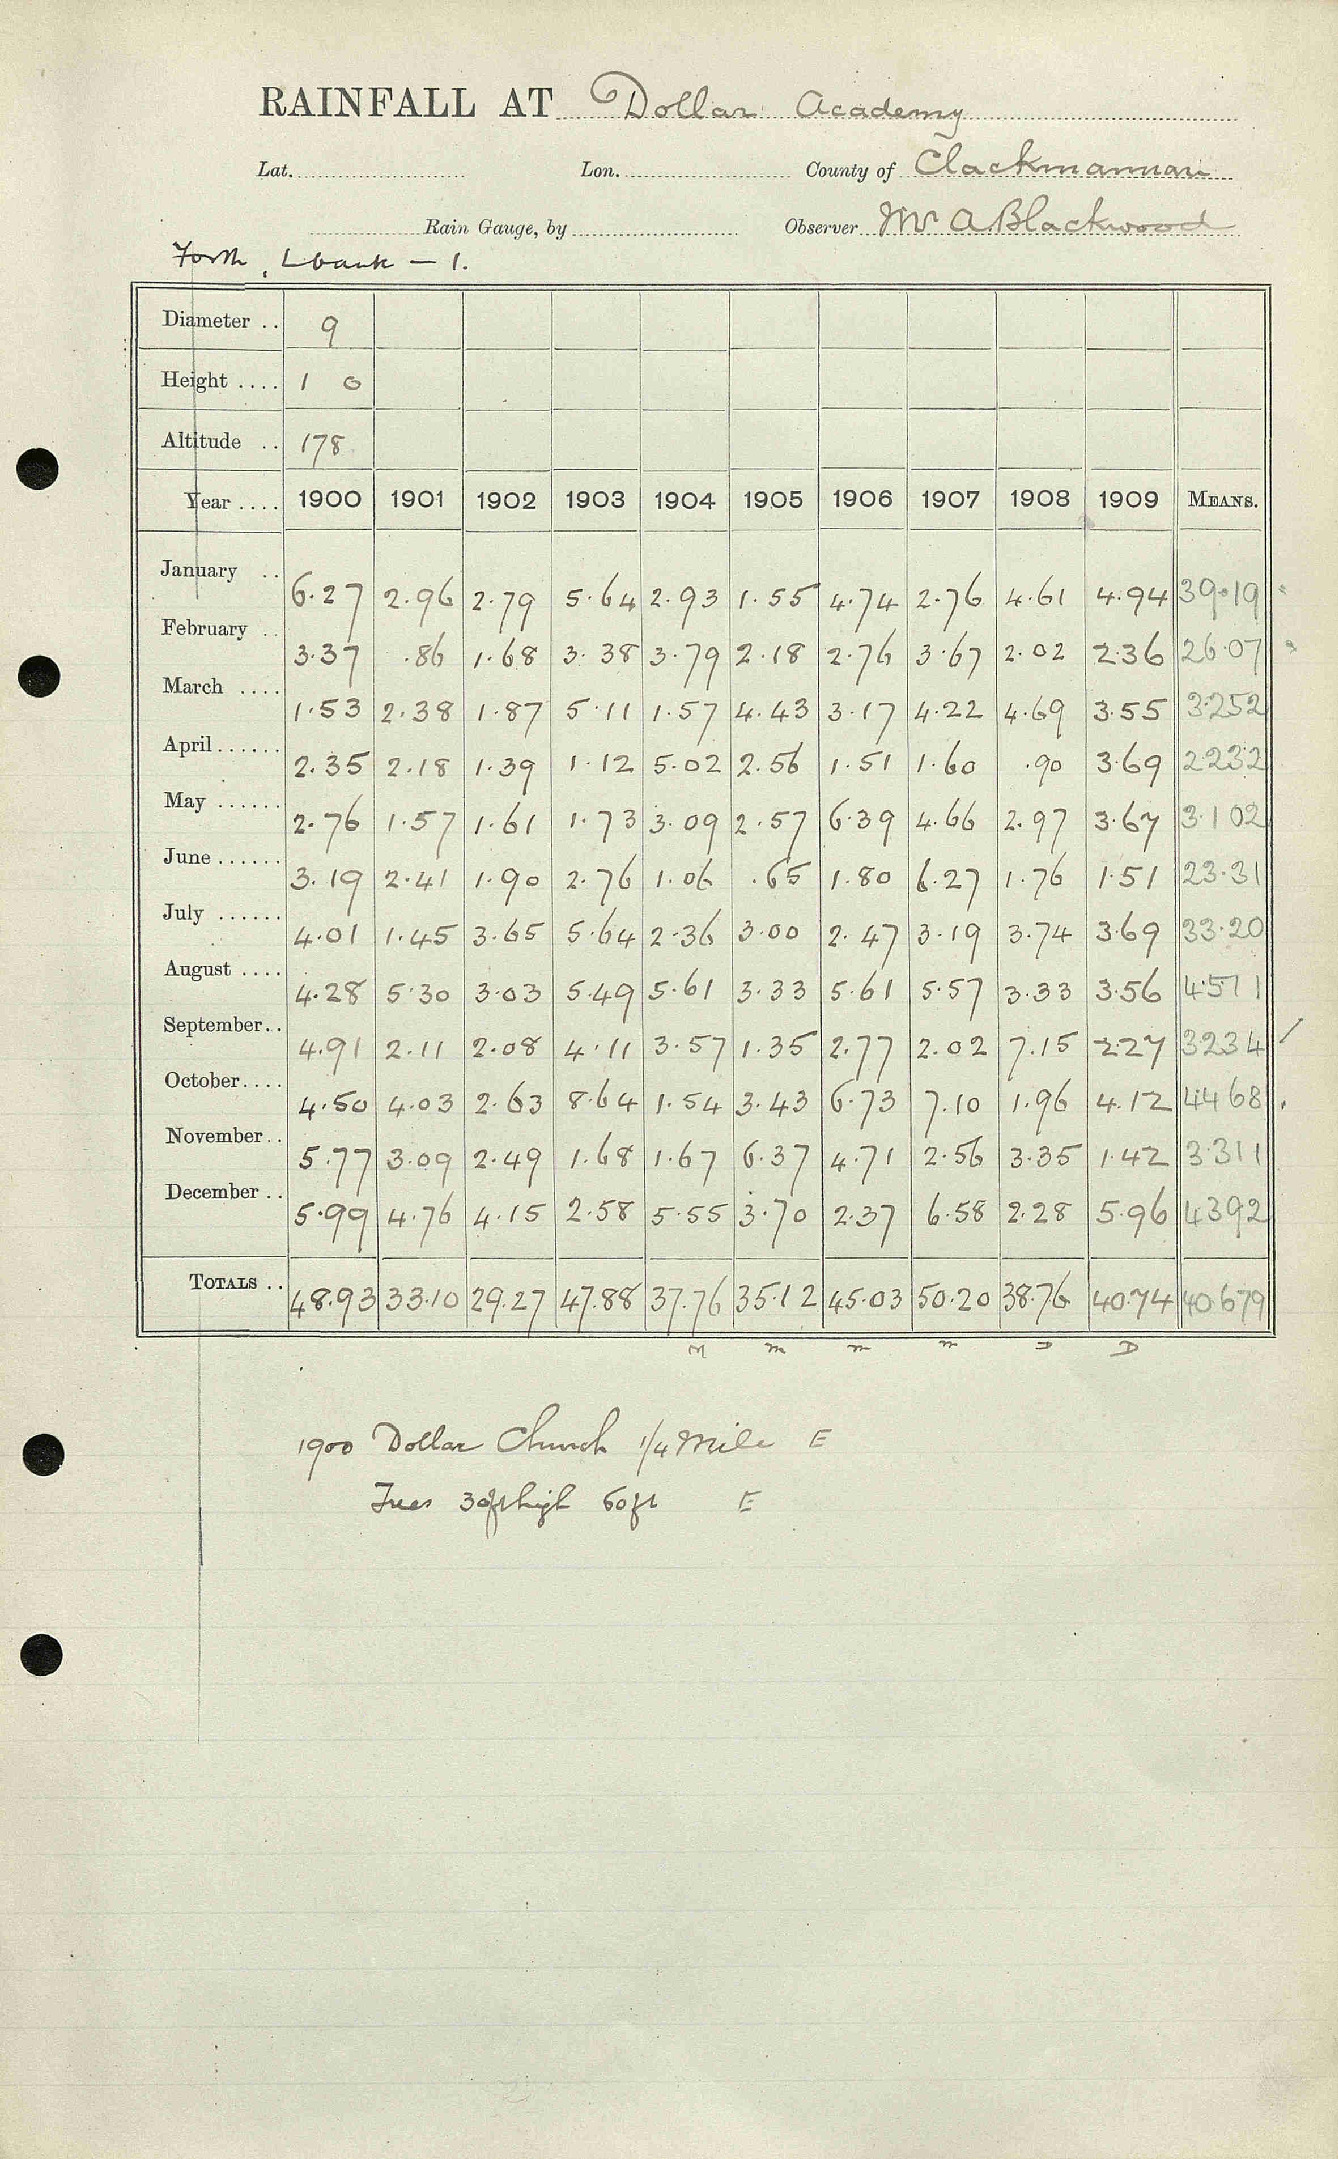 RAINFALL AT Dollar Academy
Lat. Lon. County of Clackmannan
Rain Gauge, by Observer Mr A Blackwood
Forth, L bank — 1.
Diameter .. 9
Height .... 1 0
Altitude .. 178
Year .... 1900 1901 1902 1903 1904 1905 1906 1907 1908 1909 MEANS.
January .. 6.27 2.96 2.79 5.64 2.93 1.55 4.74 2.76 4.61 4.94 39.19
February .. 3.37 .86 1.68 3.38 3.79 2.18 2.76 3.67 2.02 2.36 26.07
March .... 1.53 2.38 1.87 5.11 1.57 4.43 3.17 4.22 4.69 3.55 3.252
April ...... 2.35 2.18 1.39 1.12 5.02 2.56 1.51 1.60 .90 3.69 2.232
May ...... 2.76 1.57 1.61 1.73 3.09 2.57 6.39 4.66 2.97 3.67 3.102
June ...... 3.19 2.41 1.90 2.76 1.06 .65 1.80 6.27 1.76 1.51 23.31
July ...... 4.01 1.45 3.65 5.64 2.36 3.00 2.47 3.19 3.74 3.69 33.20
August .... 4.28 5.30 3.03 5.49 5.61 3.33 5.61 5.57 3.33 3.56 4.511
September .. 4.91 2.11 2.08 4.11 3.57 1.35 2.77 2.02 7.15 2.27 3234
October .... 4.50 4.03 2.63 8.64 1.54 3.43 6.73 7.10 1.96 4.12 4468
November .. 5.77 3.09 2.49 1.68 1.67 6.37 4.71 2.56 3.35 1.42 3.311
December .. 5.99 4.76 4.15 2.58 5.55 3.70 2.37 6.58 2.28 5.96 4392
TOTALS .. 48.93 33.10 29.27 47.88 37.76 35.12 45.03 50.20 38.76 40.74 40.679
M m m m D D
1900 Dollar Church 1/4 Mile E
Trees 30ft high 60ft E